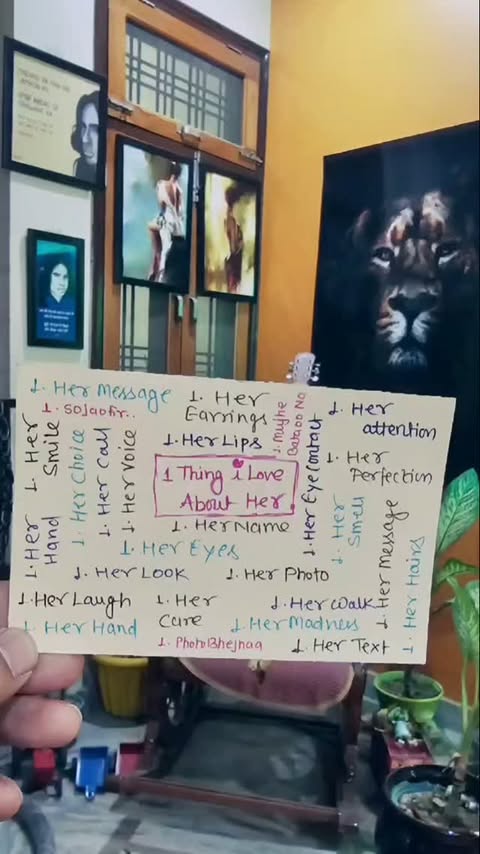 1. Her Message
1. Sojaofir..
1. Her
Earrings
1. Her Lips
1. Mujhe
Bataoo No
1. Her
attention
1. Her
Smile
1. Her Choice
1. Her Call
1. Her Voice
1 Thing i Love
About Her
1. Her Eye Contact
1. Her
Perfection
1. Her
Hand
1. Her Name
1. Her Eyes
1. Her
Smell
1. Her Message
1. Her Hairs
1. Her Look
1. Her Photo
1. Her Laugh
1. Her
Care
1. Her Walk
1. Her Hand
1. Her Madness
1. Photo Bhejnaa
1. Her Text